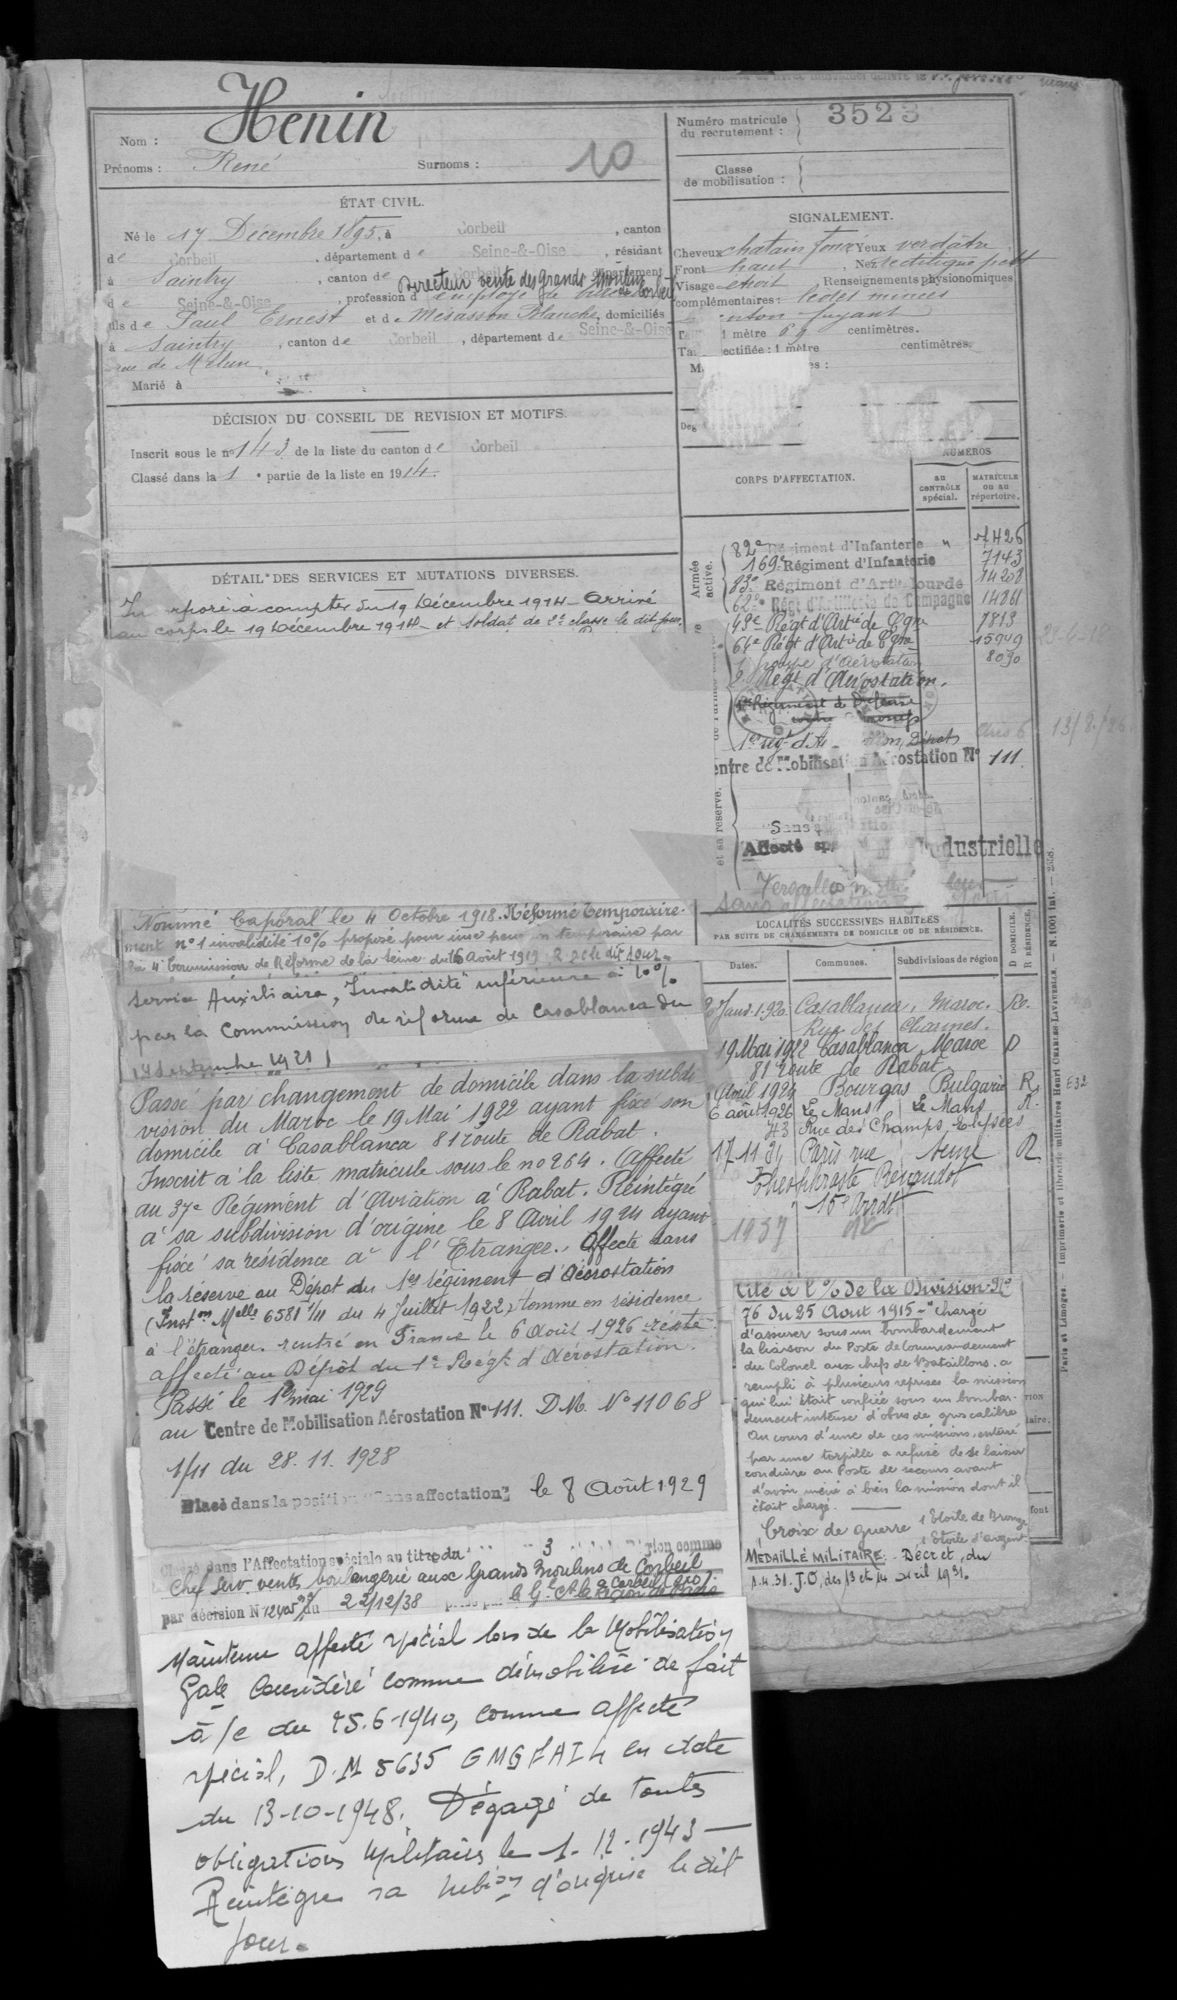 Nom : Henin
Prénoms : René Surnoms : 10
Numéro matricule du recrutement : 3523
Classe de mobilisation :
ÉTAT CIVIL.
Né le 17 Décembre 1895, à Corbeil, canton
de Corbeil, département de Seine-&-Oise, résidant
à Saintry, canton de Corbeil, département
Directeur vente des grands Moulins de Corbeil
de Seine-&-Oise, profession d'employé de
fils de Paul Ernest et de Mesasson Blanche, domiciliés
à Saintry, canton de Corbeil, département de Seine-&-Oise
rue de Melun.
Marié à
SIGNALEMENT.
Cheveux chatain foncé Yeux verdâtre
Front haut, Nez rectiligne petit
Visage étroit Renseignements physionomiques
complémentaires : minces
menton fuyant
1 mètre 69 centimètres.
Taille rectifiée : 1 mètre centimètres.
DÉCISION DU CONSEIL DE REVISION ET MOTIFS.
Inscrit sous le no 143 de la liste du canton de Corbeil
Classé dans la 1e partie de la liste en 1914.
DÉTAIL DES SERVICES ET MUTATIONS DIVERSES.
Incorporé à compter du 19 Décembre 1914 - Arrivé
au corps le 19 Décembre 1914 et soldat de 2e classe le dit jour.
Nommé Caporal le 4 Octobre 1918. Réformé Temporaire-
ment no 1 invalidité 10% proposé pour une pension temporaire par
la 4e Commission de Réforme de la Seine du 16 Août 1919 dit jour.
Service Auxiliaire, "Invalidité" inférieure à 10%
par la Commission de réforme de Casablanca du
Septembre 1921
Passé par changement de domicile dans la subdi
vision du Maroc le 19 Mai 1922 ayant fixé son
domicile à Casablanca 81 route de Rabat.
Inscrit à la liste matricule sous le no 264. Affecté
au 37e Régiment d'Aviation à Rabat. Réintégré
à sa subdivision d'origine le 8 Avril 1924 ayant
fixé sa résidence à l'Etranger. Affecté dans
la réserve au Dépôt du 1er régiment d'Aérostation
(Inston Melle 6581 1/11 du 4 Juillet 1922) comme en résidence
à l'étranger. rentré en France le 6 Août 1926 resté
affecté au Dépôt du 1er Régt d'Aérostation.
Passé le 1er mai 1929
au Centre de Mobilisation Aérostation No 111. D.M. No 11068
1/11 du 28.11.1928
Placé dans la position "Sans affectation" le 8 Août 1929
Classé dans l'Affectation spéciale au titre du 3 comme
Chef serv. ventes boulangerie aux Grands Moulins de Corbeil
à Corbeil (S&O).
par décision N du 22/12/38
Maintenu affecté spécial lors de la Mobilisation
Gale Considéré comme démobilisé de fait
à/c du 25.6.1940, comme affecté
spécial, D.M 5635 en date
du 13-10-1948. Dégagé de toutes
obligations Militaires le 1-12-1943 —
Réintégré sa subion d'origine le dit
jour.
CORPS D'AFFECTATION.
NUMÉROS
au CONTRÔLE spécial.
MATRICULE ou au répertoire.
Armée active.
82e Régiment d'Infanterie " 7426
169e Régiment d'Infanterie 7143
83e Régiment d'Artie Lourde 14208
62e Régt d'Artillerie de Campagne 14861
49e Régt d'Artie de Cgne 7813
64e Régt d'Artie de Cgne 15909
d'aérostation 8090
Régt d'Aérostation.
Régiment de Défense
13/8/26
Centre de Mobilisation Aérostation No 111.
Affecté spé Industrielle
sans affectation
LOCALITÉS SUCCESSIVES HABITÉES
PAR SUITE DE CHANGEMENTS DE DOMICILE OU DE RÉSIDENCE.
Dates. Communes. Subdivisions de région D DOMICILE. R RÉSIDENCE.
Janv. 1920 Casablanca, Maroc. R.
Rue des Charmes.
19 Mai 1922 Casablanca Maroc D
81 route de Rabat
Avril 1924 Bourgas Bulgarie R
6 août 1926 Le Mans Le Mans R.
43 Rue des Champs Elysées
17 11 31 Paris rue Seine R
Théophraste Renaudot
15e Arrdt
1937
Cité à l'O/ de la Division No
76 du 25 Aout 1915 - "Chargé
d'assurer sous un bombardement
la liaison du Poste de Commandement
du Colonel aux chefs de Bataillons, a
rempli à plusieurs reprises la mission
qui lui était confiée sous un bombar-
dement intense d'obus de gros calibre
Au cours d'une de ces missions, enterré
par une torpille a refusé de se laisser
conduire au Poste de secours avant
d'avoir mené à bien la mission dont il
était chargé.
Croix de guerre 1 Etoile de Bronze
1 Etoile d'argent.
MÉDAILLÉ MILITAIRE. Décret du
1.4.31. J.O. des 13 et 14 avril 1931.
Paris et Limoges. — Imprimerie et librairie militaires Henri CHARLES-LAVAUZELLE. — N. 1001 Int. — 2558.